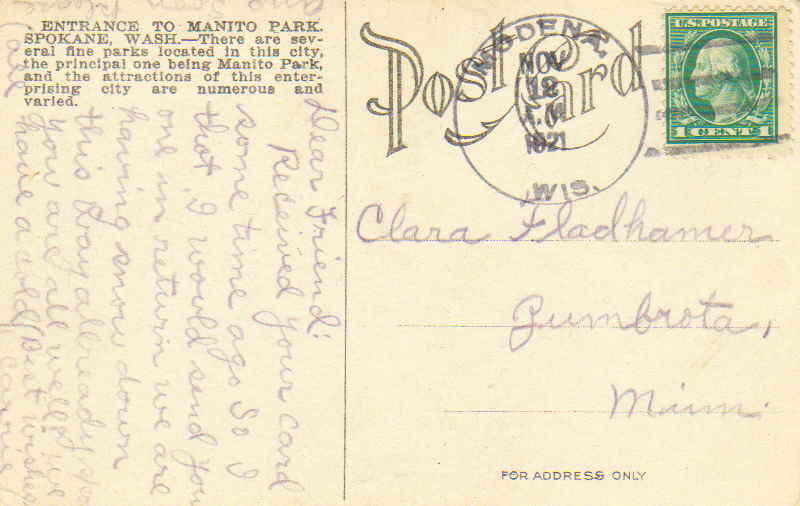 ENTRANCE TO MANITO PARK.
SPOKANE, WASH.—There are sev-
eral fine parks located in this city,
the principal one being Manito Park,
and the attractions of this enter-
prising city are numerous and
varied.
Post Card
MODENA,
NOV
12
1921
WIS.
U.S. POSTAGE
1 CENT 1
Dear Friend:
Received your card
some time ago So I
that I would send you
one in return we are
having snow down
this way allready
you are all well we
have a cold, Best wishes
Carrie
Clara Fladhamer
Zumbrota,
Minn.
FOR ADDRESS ONLY